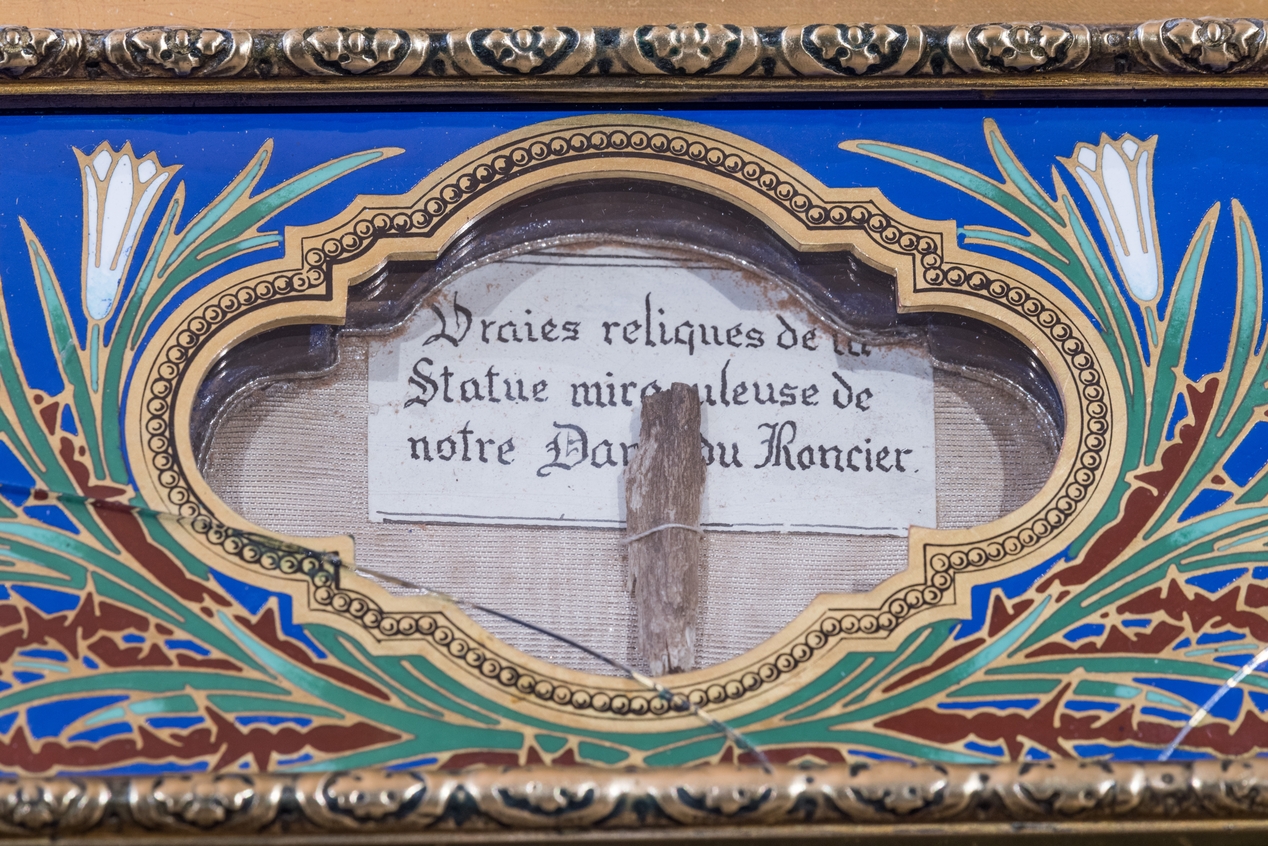 Vraies reliques de la
Statue miraculeuse de
notre Dame du Roncier.